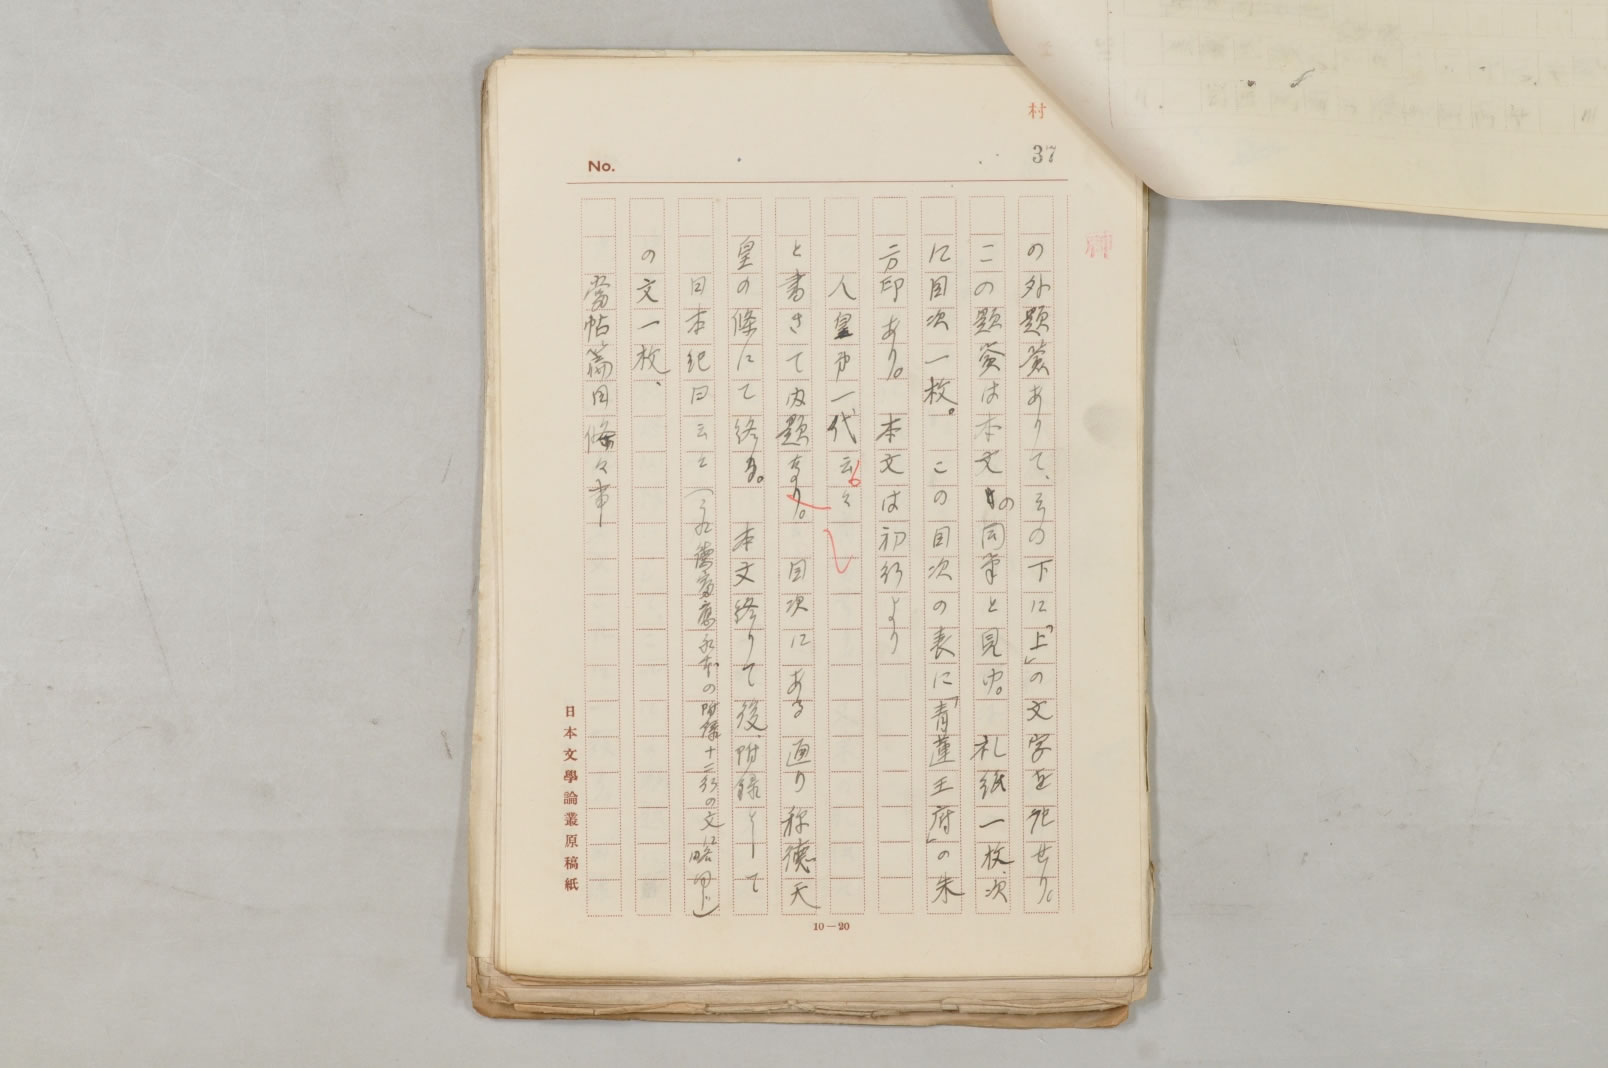 村
37
No.
の外題簽ありて、その下に「上」の文字を記せり。
この題簽は本文の同筆と見ゆ。礼紙一枚、次
に目次一枚。この目次の表に「青蓮王府」の朱
方印あり。本文は初行より
人皇第一代云々
と書きて内題なり。目次にある通り称徳天
皇の條にて終る。本文終りて後、附録として
日本紀曰云々(コレ徳富應永本の附録十二行の文に略同じ)
の文一枚、
當帖篇目條々事
日本文學論叢原稿紙
10—20